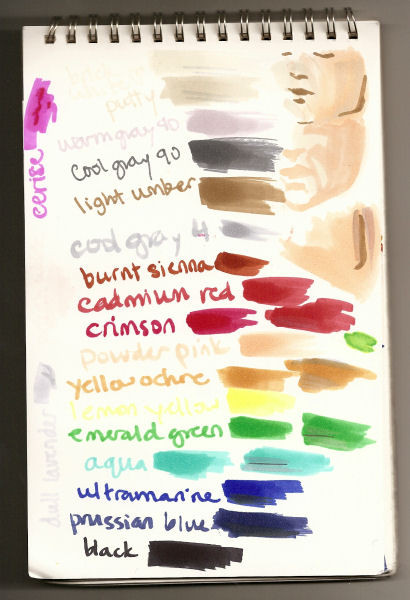 brick
putty
warm gray 90
cool gray 90
light umber
cool gray 4
burnt sienna
cadmium red
crimson
powder pink
yellow ochre
lemon yellow
emerald green
aqua
ultramarine
prussian blue
black
cerise
dull lavender